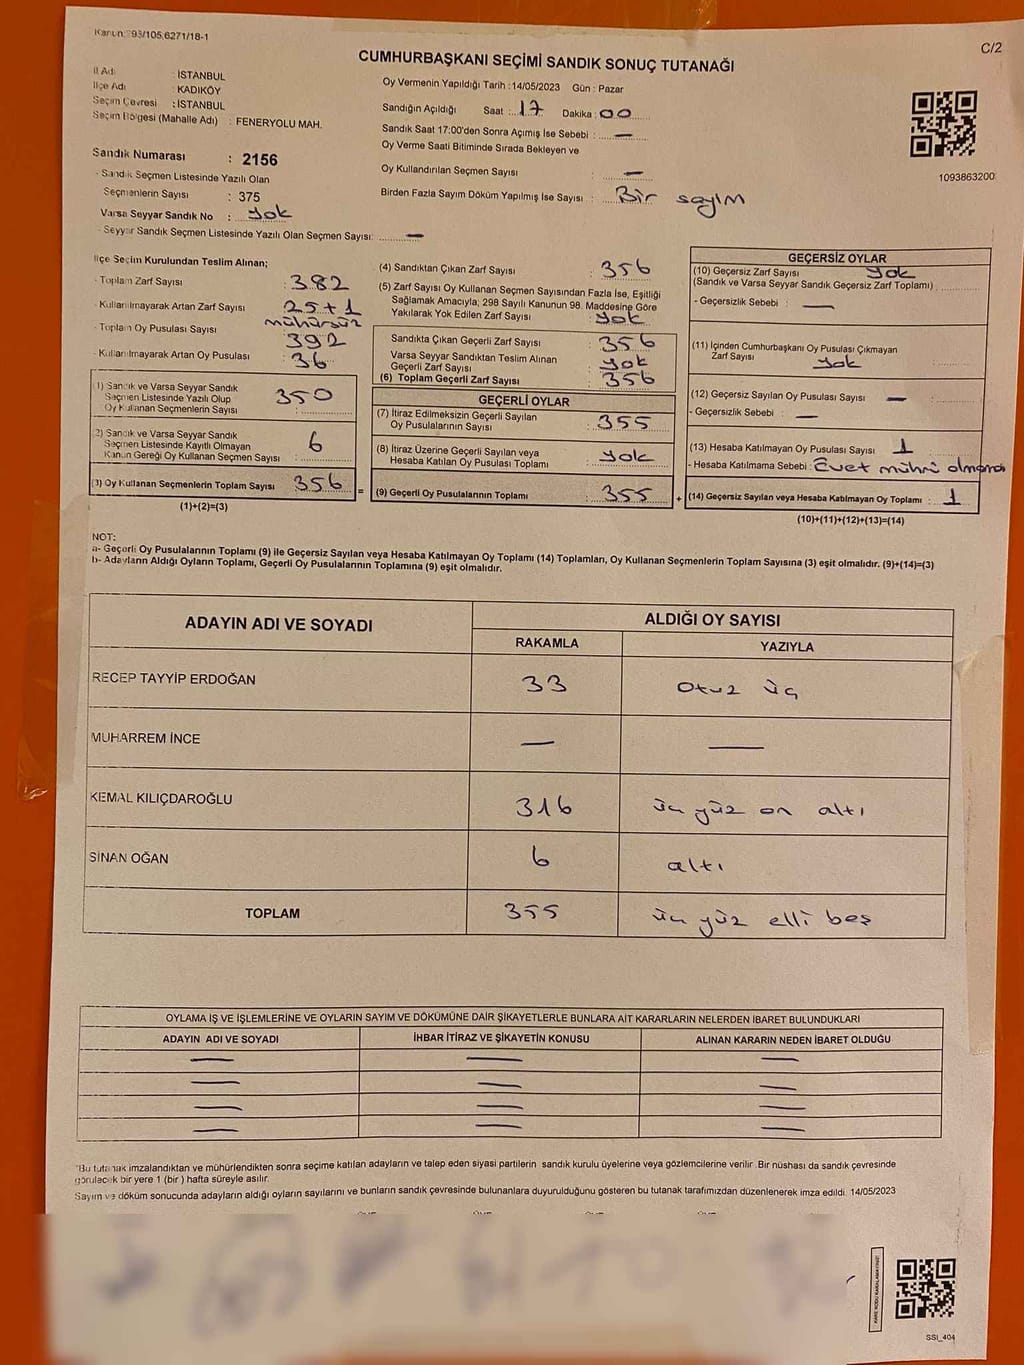 Kanun: 298/105,6271/18-1
C/2
CUMHURBAŞKANI SEÇİMİ SANDIK SONUÇ TUTANAĞI
İl Adı : İSTANBUL
İlçe Adı : KADIKÖY
Seçim Çevresi : İSTANBUL
Seçim Bölgesi (Mahalle Adı) : FENERYOLU MAH.
Sandık Numarası : 2156
- Sandık Seçmen Listesinde Yazılı Olan
Seçmenlerin Sayısı : 375
Varsa Seyyar Sandık No : Yok
- Seyyar Sandık Seçmen Listesinde Yazılı Olan Seçmen Sayısı: —
Oy Vermenin Yapıldığı Tarih :14/05/2023 Gün : Pazar
Sandığın Açıldığı Saat : 17 Dakika : 00
Sandık Saat 17:00'den Sonra Açımış İse Sebebi : —
Oy Verme Saati Bitiminde Sırada Bekleyen ve
Oy Kullandırılan Seçmen Sayısı : —
Birden Fazla Sayım Döküm Yapılmış İse Sayısı : Bir sayım
1093863200
İlçe Seçim Kurulundan Teslim Alınan;
- Toplam Zarf Sayısı : 382
- Kullanılmayarak Artan Zarf Sayısı : 25+1
mühürsüz
- Toplam Oy Pusulası Sayısı : 392
- Kullanılmayarak Artan Oy Pusulası : 36
(1) Sandık ve Varsa Seyyar Sandık
Seçmen Listesinde Yazılı Olup
Oy Kullanan Seçmenlerin Sayısı : 350
(2) Sandık ve Varsa Seyyar Sandık
Seçmen Listesinde Kayıtlı Olmayan
Kanun Gereği Oy Kullanan Seçmen Sayısı : 6
(3) Oy Kullanan Seçmenlerin Toplam Sayısı : 356 =
(1)+(2)=(3)
(4) Sandıktan Çıkan Zarf Sayısı : 356
(5) Zarf Sayısı Oy Kullanan Seçmen Sayısından Fazla İse, Eşitliği
Sağlamak Amacıyla; 298 Sayılı Kanunun 98. Maddesine Göre
Yakılarak Yok Edilen Zarf Sayısı : Yok
Sandıkta Çıkan Geçerli Zarf Sayısı : 356
Varsa Seyyar Sandıktan Teslim Alınan
Geçerli Zarf Sayısı : Yok
(6) Toplam Geçerli Zarf Sayısı : 356
GEÇERLİ OYLAR
(7) İtiraz Edilmeksizin Geçerli Sayılan
Oy Pusulalarının Sayısı : 355
(8) İtiraz Üzerine Geçerli Sayılan veya
Hesaba Katılan Oy Pusulası Toplamı : Yok
(9) Geçerli Oy Pusulalarının Toplamı : 355 +
GEÇERSİZ OYLAR
(10) Geçersiz Zarf Sayısı : Yok
(Sandık ve Varsa Seyyar Sandık Geçersiz Zarf Toplamı)
- Geçersizlik Sebebi : —
(11) İçinden Cumhurbaşkanı Oy Pusulası Çıkmayan
Zarf Sayısı : Yok
(12) Geçersiz Sayılan Oy Pusulası Sayısı : —
- Geçersizlik Sebebi : —
(13) Hesaba Katılmayan Oy Pusulası Sayısı : 1
- Hesaba Katılmama Sebebi : Evet mührü olmaması
(14) Geçersiz Sayılan veya Hesaba Katılmayan Oy Toplamı : 1
(10)+(11)+(12)+(13)=(14)
NOT:
a- Geçerli Oy Pusulalarının Toplamı (9) ile Geçersiz Sayılan veya Hesaba Katılmayan Oy Toplamı (14) Toplamları, Oy Kullanan Seçmenlerin Toplam Sayısına (3) eşit olmalıdır. (9)+(14)=(3)
b- Adayların Aldığı Oyların Toplamı, Geçerli Oy Pusulalarının Toplamına (9) eşit olmalıdır.
ADAYIN ADI VE SOYADI ALDIĞI OY SAYISI
RAKAMLA YAZIYLA
RECEP TAYYİP ERDOĞAN 33 Otuz üç
MUHARREM İNCE — —
KEMAL KILIÇDAROĞLU 316 üç yüz on altı
SİNAN OĞAN 6 altı
TOPLAM 355 üç yüz elli beş
OYLAMA İŞ VE İŞLEMLERİNE VE OYLARIN SAYIM VE DÖKÜMÜNE DAİR ŞİKAYETLERLE BUNLARA AİT KARARLARIN NELERDEN İBARET BULUNDUKLARI
ADAYIN ADI VE SOYADI İHBAR İTİRAZ VE ŞİKAYETİN KONUSU ALINAN KARARIN NEDEN İBARET OLDUĞU
— — —
— — —
— — —
— — —
*Bu tutanak imzalandıktan ve mühürlendikten sonra seçime katılan adayların ve talep eden siyasi partilerin sandık kurulu üyelerine veya gözlemcilerine verilir. Bir nüshası da sandık çevresinde
görülecek bir yere 1 (bir ) hafta süreyle asılır.
Sayım ve döküm sonucunda adayların aldığı oyların sayılarını ve bunların sandık çevresinde bulunanlara duyurulduğunu gösteren bu tutanak tarafımızdan düzenlenerek imza edildi. 14/05/2023
SSI_404